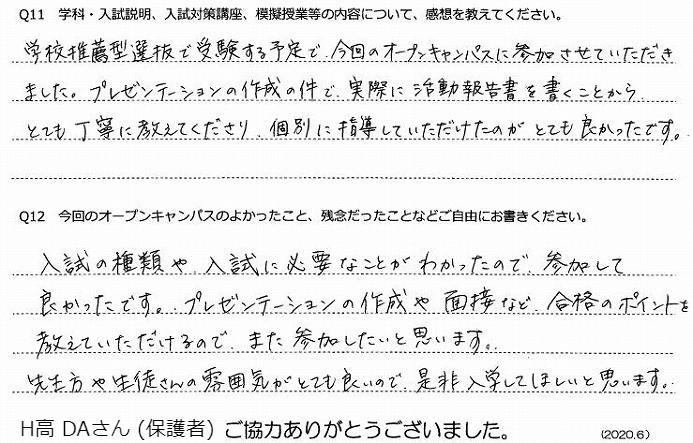 Q11 学科・入試説明、入試対策講座、模擬授業等の内容について、感想を教えてください。
学校推薦型選抜で受験する予定で、今回のオープンキャンパスに参加させていただき
ました。プレゼンテーションの作成の件で、実際に活動報告書を書くことから、
とても丁寧に教えてくださり、個別に指導していただけたのがとても良かったです。
Q12 今回のオープンキャンパスのよかったこと、残念だったことなどご自由にお書きください。
入試の種類や、入試に必要なことがわかったので、参加して
良かったです。プレゼンテーションの作成や面接など、合格のポイントを
教えていただけるので、また参加したいと思います。
先生方や生徒さんの雰囲気がとても良いので、是非入学してほしいと思います。
H高 DAさん (保護者) ご協力ありがとうございました。 (2020.6)